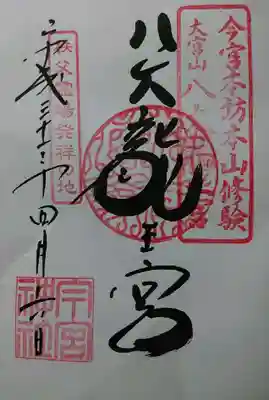 今宮本坊本山修験
大宮山八
八大龍王宮
秩父霊場発祥地
平成三十一年四月六日
今宮神社